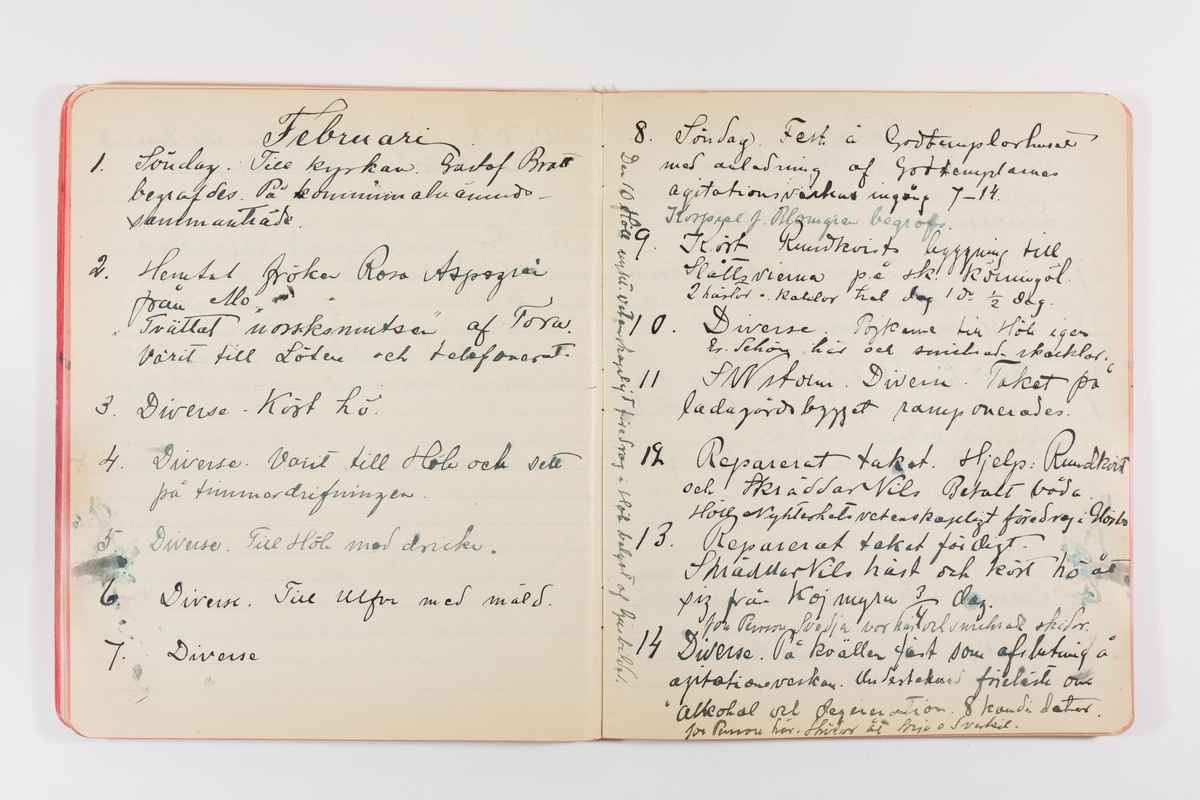 Februari
1. Söndag. Till kyrkan. Gustaf Bratt
begrafdes. På kommunalnämnds-
sammanträde.
2. Hemtat fröken Rosa
från Mo.
Tvättat "norsksmutsen" af Tora.
Varit till Löten och telefonerat.
3. Diverse. Kört hö.
4. Diverse. Varit till Höh och sett
på timmerdrifningen.
5. Diverse. Till Höh med dricka.
6. Diverse. Till Ulfva med mäld.
7. Diverse
8. Söndag. Fest å Godtemplarhuset
med anledning af Godtemplarnes
agitationsveckas ingång 7-14.
Korpral J. Blomgren begrofs.
9. Kört Rundkvists byggning till
Slåttsvierna på sk. körningöl.
2 hästar o. kaklar hel dag 1 d:o ½ dag.
10. Diverse. Pojkarne till Höh igen
Er. Schön här och smidde skacklar.
11 SW storm. Divers. Taket på
ladugårdsbygget ramponerades.
12 Reparerat taket. Hjelp: Rundkvist
och SkräddarNils Betalt våda.
Höll Nykterhetsvetenskapligt föredrag i
13. Reparerat taket färdigt.
SkräddarNils häst och kört hö åt
sig från Kojmyra 3/4 dag.
Jon Persson Svedja var här och smidde skidor.
14 Diverse. På kvällen fäst som afslutning å
agitationsveckan. Undertecknad föreläste om
"Alkohol och degeneration. 8 kandidater.
Jon Persson här. Skidor åt
Den 10 Höll nykt. vetenskapligt föredrag i Höh helgel af